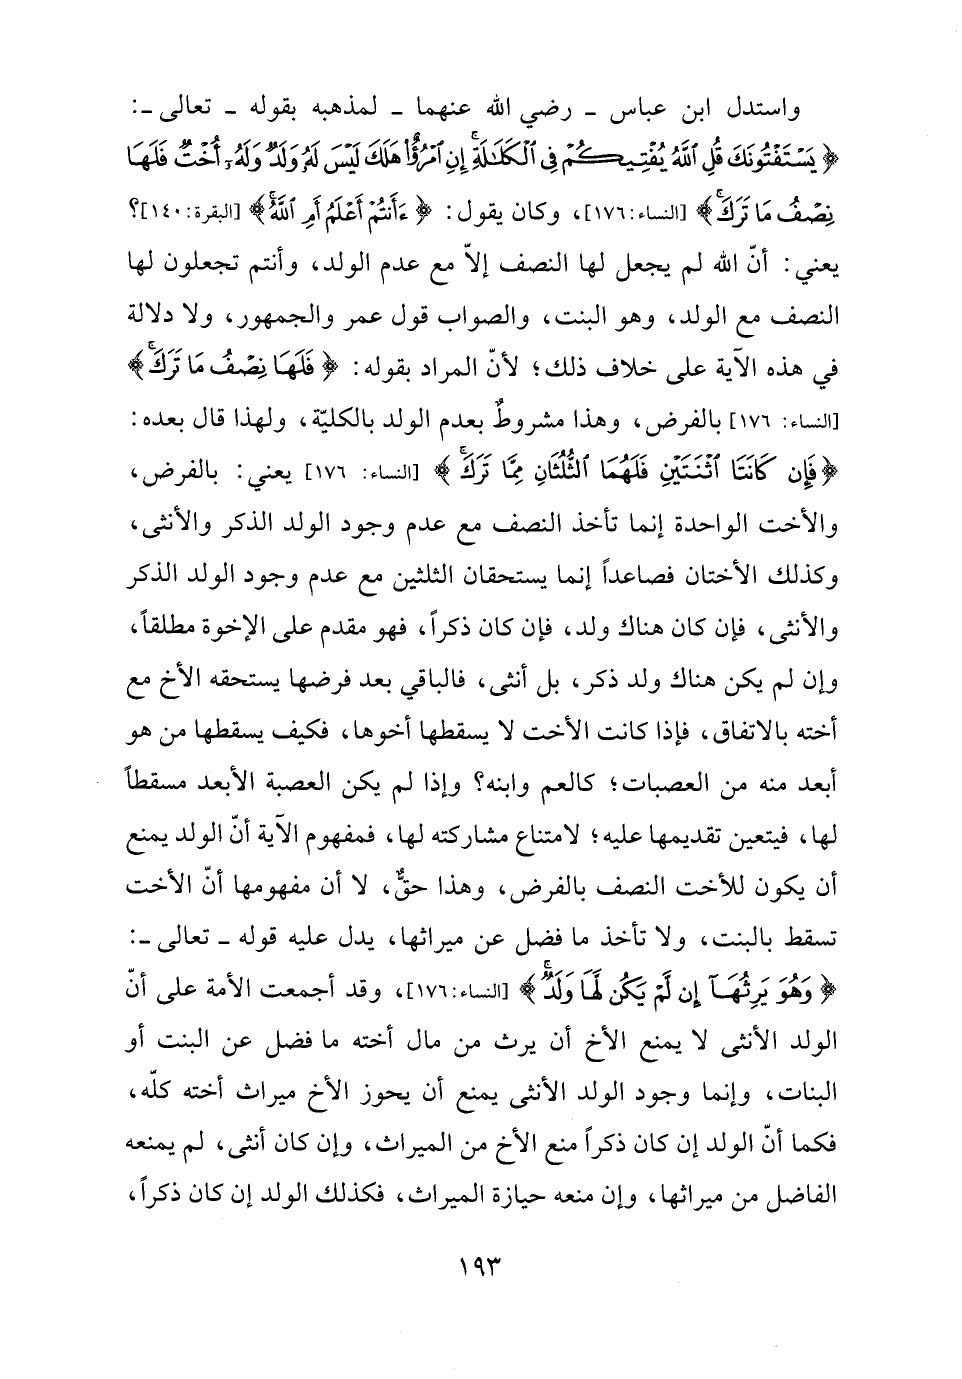 واستدل ابن عباس ـ رضي الله عنهما ـ لمذهبه بقوله ـ تعالى ـ:
﴿ يَسْتَفْتُونَكَ قُلِ ٱللَّهُ يُفْتِيكُمْ فِى ٱلْكَلَـٰلَةِ ۚ إِنِ ٱمْرُؤٌا۟ هَلَكَ لَيْسَ لَهُۥ وَلَدٌ وَلَهُۥٓ أُخْتٌ فَلَهَا
نِصْفُ مَا تَرَكَ ۚ ﴾ [النساء: ١٧٦]، وكان يقول: ﴿ ءَأَنتُمْ أَعْلَمُ أَمِ ٱللَّهُ ۚ ﴾ [البقرة: ١٤٠]؟
يعني: أنّ الله لم يجعل لها النصف إلاّ مع عدم الولد، وأنتم تجعلون لها
النصف مع الولد، وهو البنت، والصواب قول عمر والجمهور، ولا دلالة
في هذه الآية على خلاف ذلك؛ لأنّ المراد بقوله: ﴿ فَلَهَا نِصْفُ مَا تَرَكَ ۚ ﴾
[النساء: ١٧٦] بالفرض، وهذا مشروطٌ بعدم الولد بالكليّة، ولهذا قال بعده:
﴿ فَإِن كَانَتَا ٱثْنَتَيْنِ فَلَهُمَا ٱلثُّلُثَانِ مِمَّا تَرَكَ ۚ ﴾ [النساء: ١٧٦] يعني: بالفرض،
والأخت الواحدة إنما تأخذ النصف مع عدم وجود الولد الذكر والأنثى،
وكذلك الأختان فصاعداً إنما يستحقان الثلثين مع عدم وجود الولد الذكر
والأنثى، فإن كان هناك ولد، فإن كان ذكراً، فهو مقدم على الإخوة مطلقاً،
وإن لم يكن هناك ولد ذكر، بل أنثى، فالباقي بعد فرضها يستحقه الأخ مع
أخته بالاتفاق، فإذا كانت الأخت لا يسقطها أخوها، فكيف يسقطها من هو
أبعد منه من العصبات؛ كالعم وابنه؟ وإذا لم يكن العصبة الأبعد مسقطاً
لها، فيتعين تقديمها عليه؛ لامتناع مشاركته لها، فمفهوم الآية أنّ الولد يمنع
أن يكون للأخت النصف بالفرض، وهذا حقٌّ، لا أن مفهومها أنّ الأخت
تسقط بالبنت، ولا تأخذ ما فضل عن ميراثها، يدل عليه قوله ـ تعالى ـ:
﴿ وَهُوَ يَرِثُهَآ إِن لَّمْ يَكُن لَّهَا وَلَدٌ ۚ ﴾ [النساء: ١٧٦]، وقد أجمعت الأمة على أنّ
الولد الأنثى لا يمنع الأخ أن يرث من مال أخته ما فضل عن البنت أو
البنات، وإنما وجود الولد الأنثى يمنع أن يحوز الأخ ميراث أخته كلّه،
فكما أنّ الولد إن كان ذكراً منع الأخ من الميراث، وإن كان أنثى، لم يمنعه
الفاضل من ميراثها، وإن منعه حيازة الميراث، فكذلك الولد إن كان ذكراً،
١٩٣